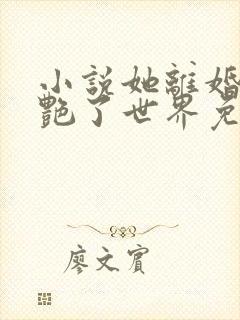 小説她離婚
艷了世界免
廖文賓